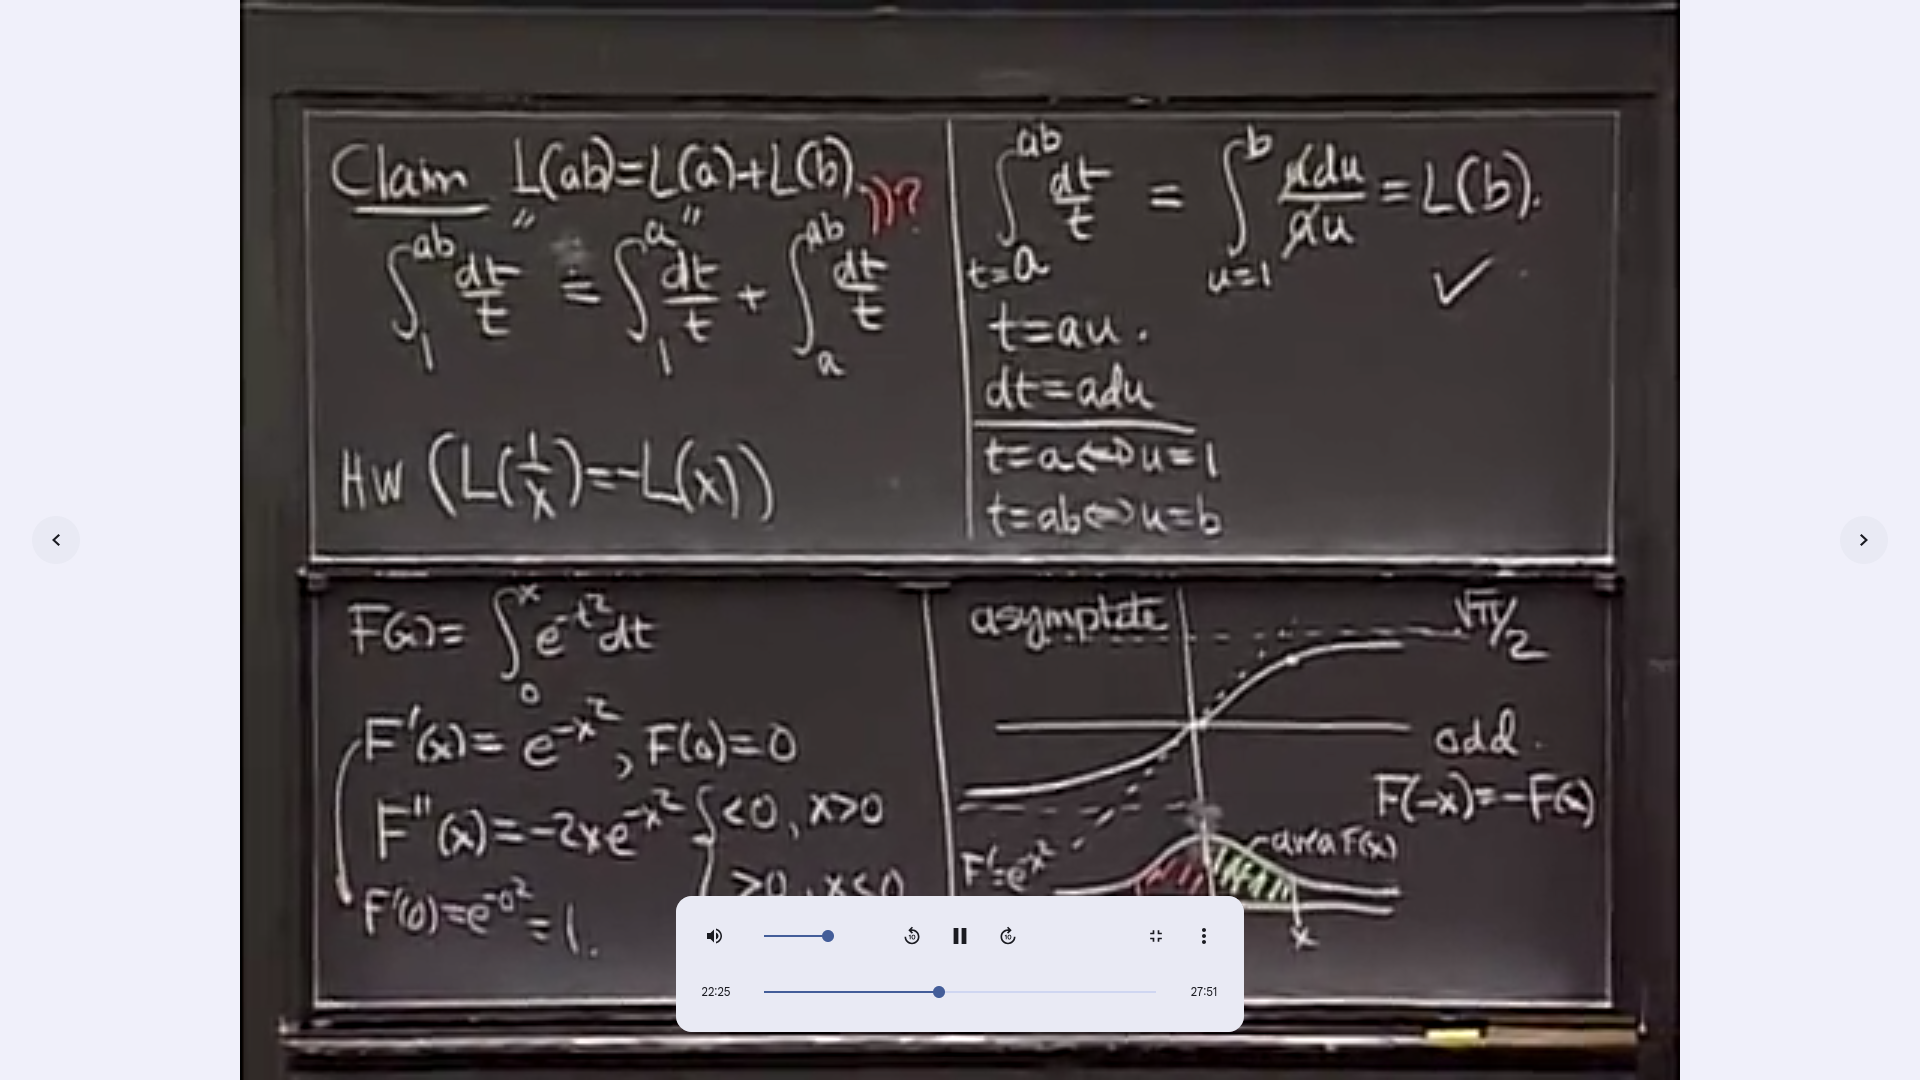 Claim L(ab)=L(a)+L(b).))?
" "
∫₁^ab dt/t = ∫₁^a dt/t + ∫ₐ^ab dt/t
HW (L(1/x)=-L(x))
∫_{t=a}^ab dt/t = ∫_{u=1}^b adu/au = L(b).
✓
t=au.
dt=adu
t=a⇔u=1
t=ab⇔u=b
F(x)= ∫₀^x e^-t² dt
F'(x)= e^-x², F(0)=0
F"(x)=-2xe^-x² { <0, x>0
>0, x<0
F'(0)=e^-0²=1.
asymptote
√π/2
odd.
F(-x)=-F(x)
F'=e^-x²
area F(x)
x
10
10
22:25
27:51